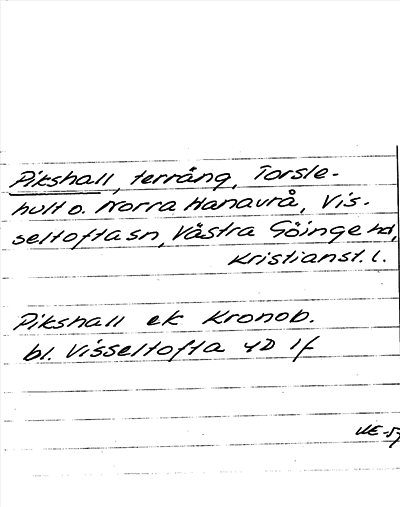 Pikshall, terräng, Torsle-
hult o. Norra Hanaurå, Vis-
seltofta sn, Västra Göinge hd,
Kristianst. l.
Pikshall ek Kronob.
bl. Visseltofta 4D 1f